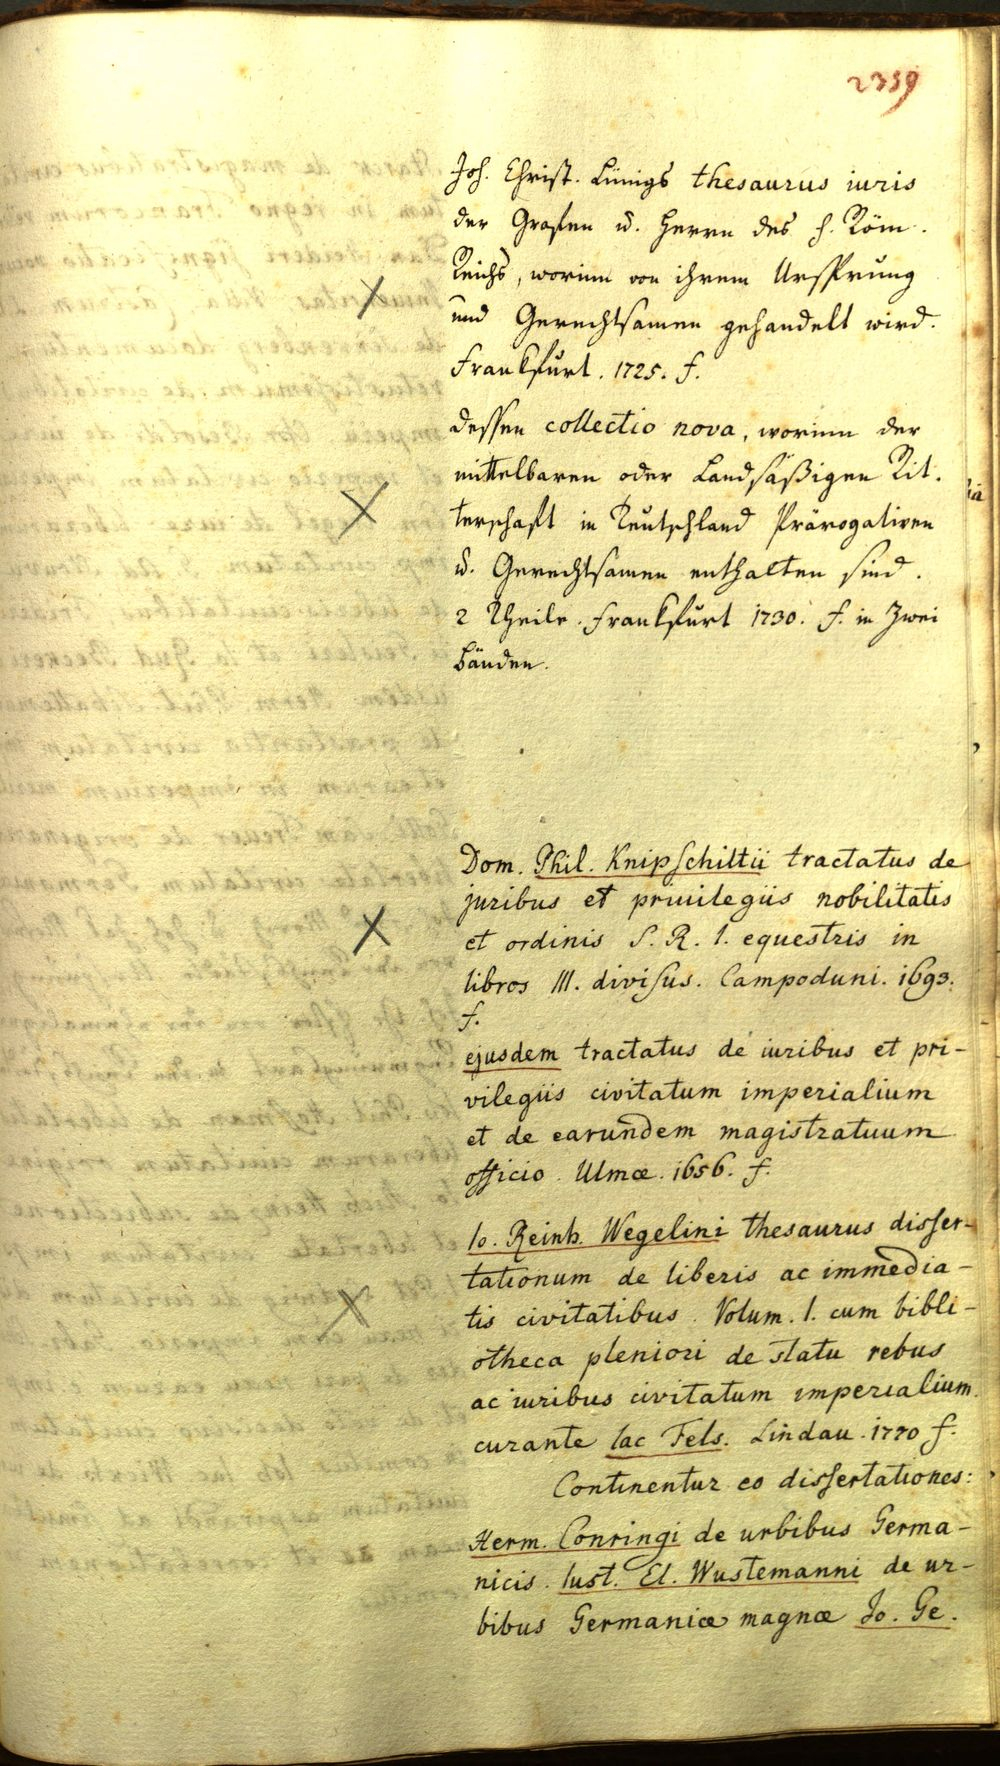 2359
Joh. Christ. Lünigs thesaurus iuris
der Grafen u. Herrn des h. Röm.
Reichs, worinn von ihrem Ursprung
und Gerechtsamen gehandelt wird.
Frankfurt. 1725. f.
dessen collectio nova, worinn der
mittelbaren oder Landsäßigen Rit-
terschaft in Teutschland Prärogativen
u. Gerechtsamen enthalten sind.
2 Theile. Frankfurt 1730. f. in Zwei
Bänden.
Dom. Phil. Knipschiltii tractatus de
juribus et priuilegiis nobilitatis
et ordinis S. R. I. equestris in
libros III. divisus. Campoduni. 1693.
f.
ejusdem tractatus de iuribus et pri-
vilegiis civitatum imperialium
et de earundem magistratuum
officio. Ulmæ. 1656. f.
Io. Reinh. Wegelini thesaurus disser-
tationum de liberis ac immedia-
tis civitatibus. Volum. I. cum bibli-
otheca pleniori de statu rebus
ac iuribus civitatum imperialium.
curante Iac Fels. Lindau. 1770 f.
Continentur eo dissertationes:
Herm. Conringi de urbibus Germa-
nicis. Iust. El. Wustemanni de ur-
bibus Germaniæ magnæ Jo. Ge.